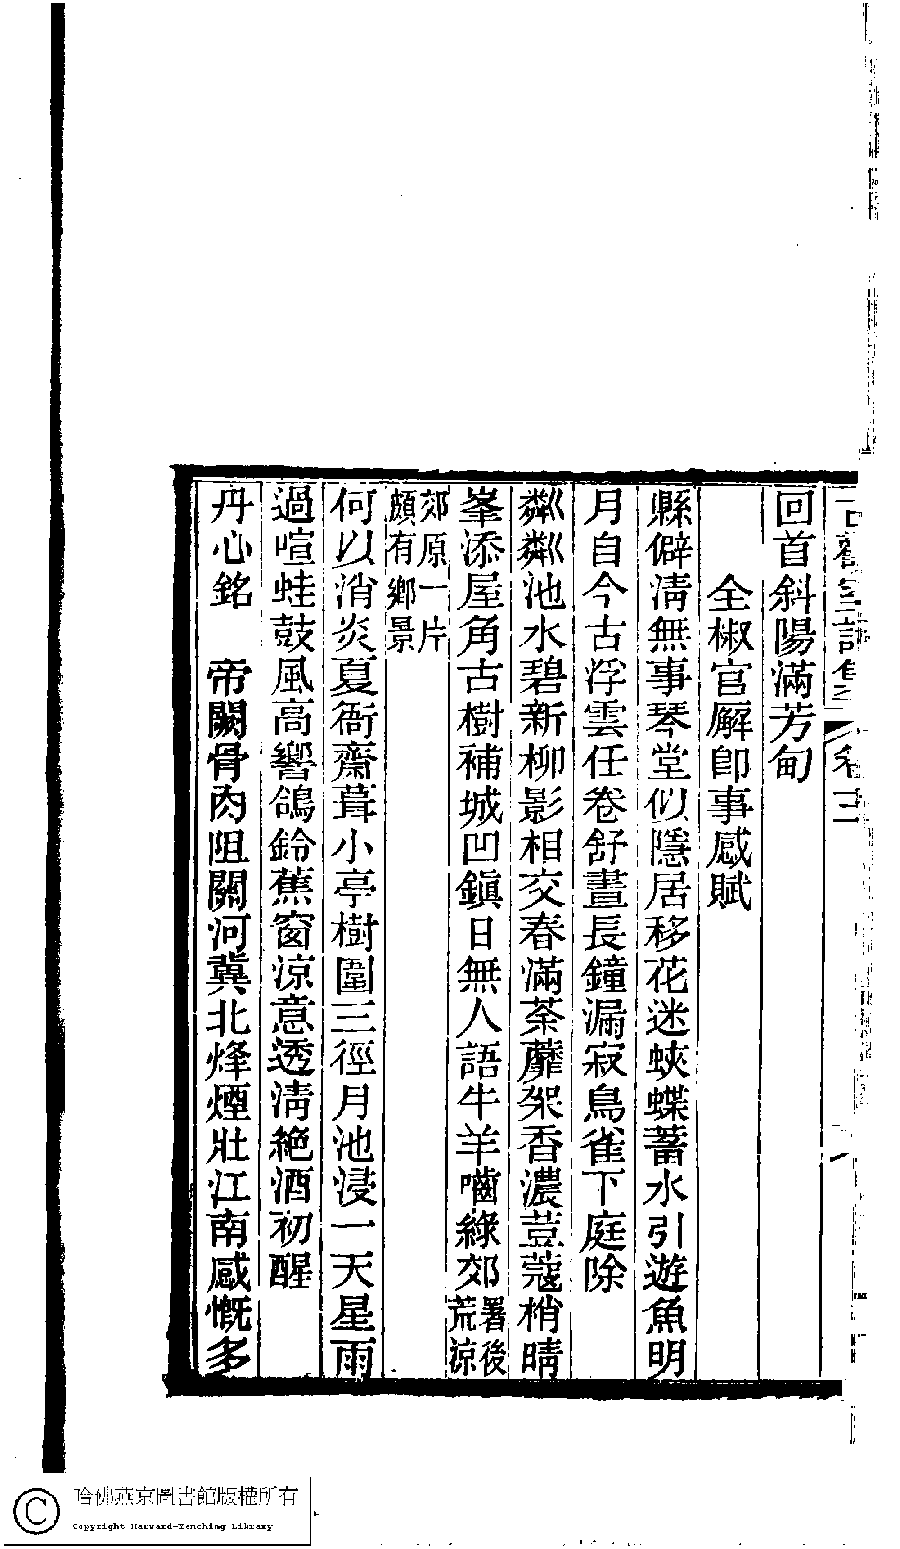 回首斜陽滿芳甸
全椒官廨卽事感賦
縣僻淸無事琴堂似隱居移花迷蛺蝶蓄水引遊魚明
月自今古浮雲任卷舒晝長鐘漏寂鳥雀下庭除
粼粼池水碧新柳影相交春滿荼蘼架香濃荳蔻梢晴
峯添屋角古樹補城凹鎭日無人語牛羊嚙綠郊署後荒涼
郊原一片頗有鄉景
何以消炎夏衙齋葺小亭樹圍三徑月池浸一天星雨
過喧蛙鼓風高響鴿鈴蕉窗涼意透淸絶酒初醒
丹心銘 帝闕骨肉阻關河冀北烽煙壯江南感慨多
哈佛燕京圖書館版權所有
Copyright Harvard-Yenching Library